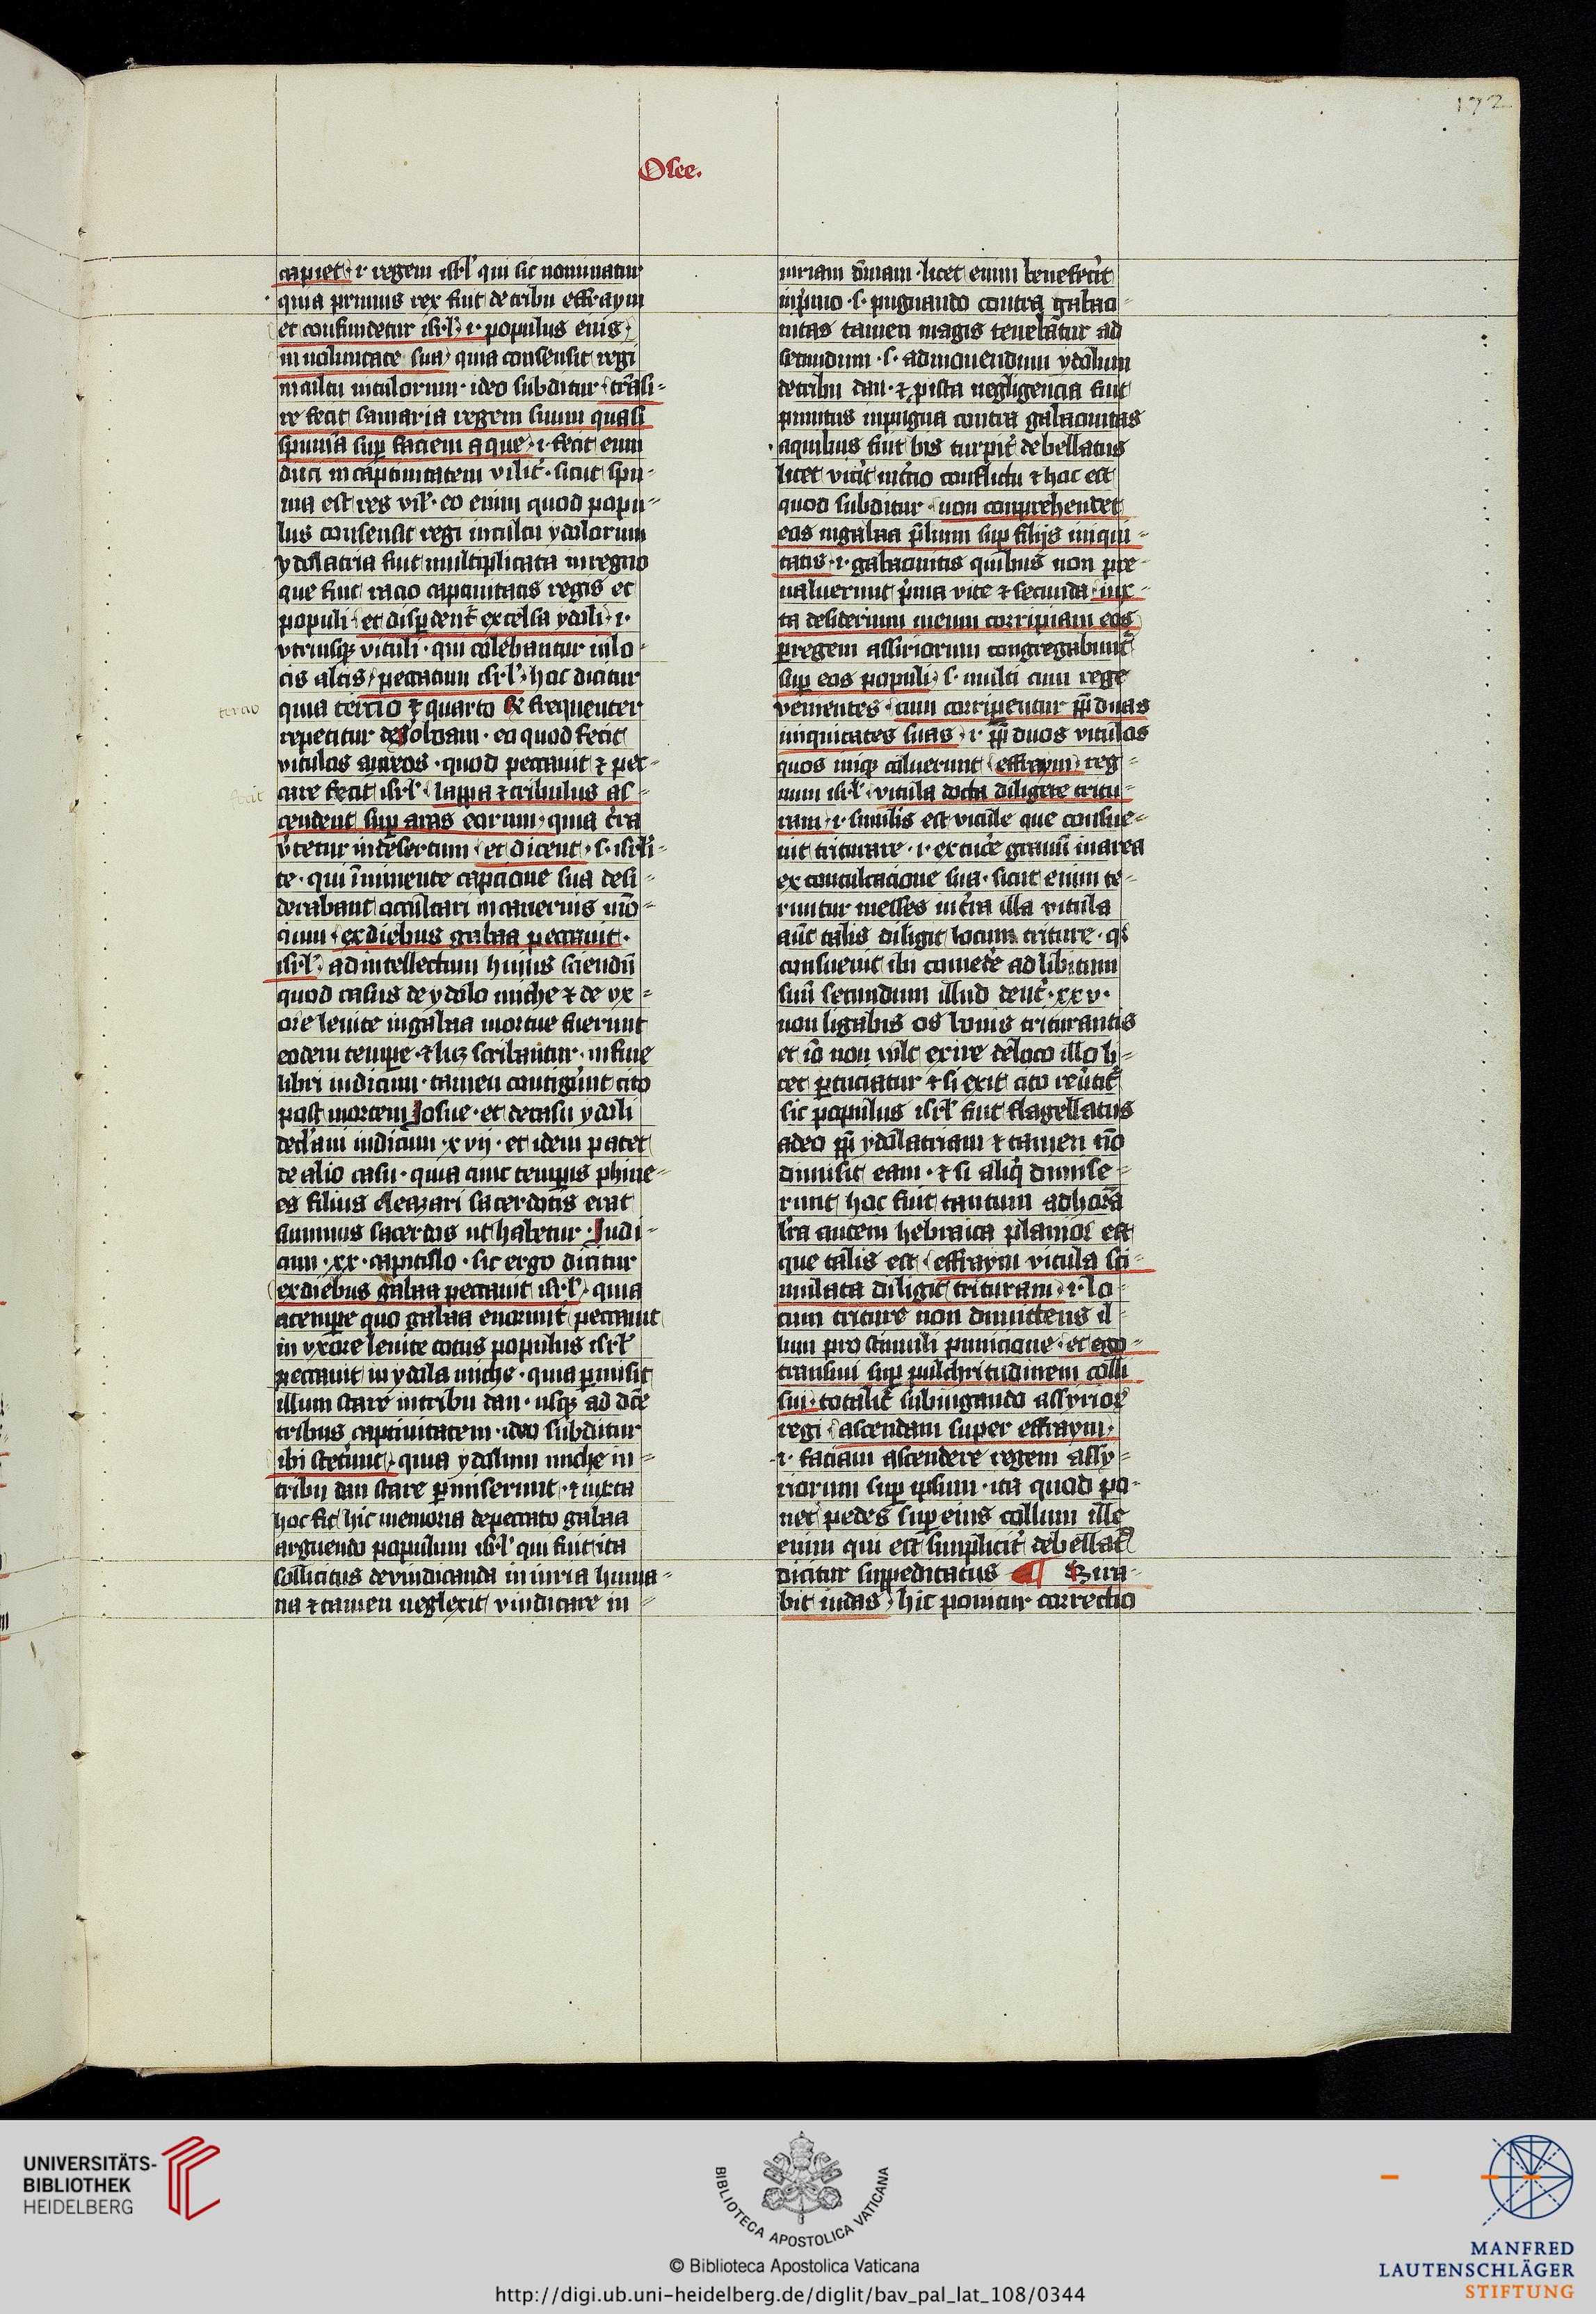 172
Osee.
capiet · i· regem isrl' qui sic nominatur
quia primus rex fuit de tribu effraym
et confundetur isrl' · i· populus eius
in voluntate sua quia consensit regi
in cultu vitulorum · ideo subditur · trāsi-
re fecit samaria regem suum quasi
spumā sup faciem aque · i· fecit eum
duci in captiuitatem vilit' · sicut spu-
ma est res vil' · eo enim quod popu-
lus consensit regi in cultu ydolorum
ydolatria fuit multiplicata in regno
que fuit racio captiuitatis regis et
populi · et disperdent' excelsa ydoli · i·
vtriusq; vituli · qui colebantur in lo-
cis altis peccatum isrl' hoc dicitur
tercio
quia tercio et quarto R frequenter
repetitur de Jolvam · eo quod fecit
vitulos aureos · quod peccauit et pec-
fecit
care fecit isrl' · lappa et tribulus as-
cendent sup aras eorum quia t'ra
v'tetur in desertum · et dicent · s· isrl'i-
te · qui īminente capcione sua desi-
derabant occultari in cauernis mō-
cium · ex diebus gabaa peccauit ·
isrl' ad intellectum huius sciendū
quod casus de ydolo miche et de vx-
ore leuite in gabaa mortue fuerunt
eodem tempe · et licz scribantur · in fine
libri iudicum · tamen contigūnt cito
post mortem Josue · et de casu ydoli
decl'aui iudicum · xvij · et idem patet
de alio casu · quia tunc tempus phine-
es filius eleazari sacerdotis erat
summus sacerdos ut habetur · Judi-
cum · xx · capitulo · sic ergo dicitur
ex diebus gabaa peccauit isrl' · quia
a tempe quo gabaa enormit' peccauit
in vxore leuite totus populus isrl'
peccauit in ydola miche · quia p̄misit
illum stare in tribu dan · usq; ad dc̄e
tribus captiuitatem · ideo subditur
ibi stetūnt · quia ydolum miche in
tribu dan stare p̄miserunt · et iuxta
hoc fit hic memoria de peccato gabaa
arguendo populum isrl' qui fuit ita
sollicitus de vindicanda iniuria huma-
na et tamen neglexit vindicare in-
iuriam diuinam · licet enim benefecit
in p̄mo · s· pugnando contra gabao-
nitas tamen magis tenebātur ad
secundum · s· ad mouendum ydolum
de tribu dan · et p ista negligencia fuit
punitus in pugna contra gabaonitas
a quibus fuit bis turpit' debellatus
licet vicit in t'cio conflictu et hoc est
quod subditur · non comprehendet
eos in gabaa p̄lium sup filijs iniqui-
tatis · i· gabaonitis quibus non pre-
ualuerunt p̄ma vice et secunda · iux-
ta desiderium meum corripiam eos
p regem assiriorum congregabunt'
sup eos populi · s· multi cum rege
venientes · cum corripientur pp̄ duas
iniquitates suas · i· pp̄ duos vitulos
quos iniq; coluerunt · effraym reg-
num isrl' · vitula docta diligere tritu-
ram · i· similis est vitule que consue-
uit triturare · i· excut'e granū in area
ex conculcacione sua · sicut enim te-
runtur messes in t'ra illa vitula
aūt talis diligit locum triture · q'
consueuit ibi comed'e ad libitum
suū secundum illud deut' · xxv ·
non ligabis os bouis triturantis
et iō non vult exire de loco illo li-
cet p̄cuciatur et si exit cito reūtit'
sic populus isrl' fuit flagellatus
adeo pp̄ ydolatriam et tamen nō
dimisit eam · et si aliq' dimise-
runt hoc fuit tantum ad horā
lr̄a autem hebraica planior est
que talis est · effraym vitula sti-
mulata diligit trituram · i· lo-
cum triture non dimittens il-
lum pro stimuli punicione · et ego
transiui sup pulchritudinem colli
sui · totalit' subiugando assyrior
regi · ascendam super effraym ·
i· faciam ascendere regem assy-
riorum sup ipsum · ita quod po-
net pedes sup eius collum ille
enim qui est simplicit' debellat'
dicitur suppeditatus ¶ Ara-
bit iudas · hic ponitur correctio
UNIVERSITÄTS-
BIBLIOTHEK
HEIDELBERG
BIBLIOTECA APOSTOLICA VATICANA
© Biblioteca Apostolica Vaticana
http://digi.ub.uni-heidelberg.de/diglit/bav_pal_lat_108/0344
MANFRED
LAUTENSCHLÄGER
STIFTUNG